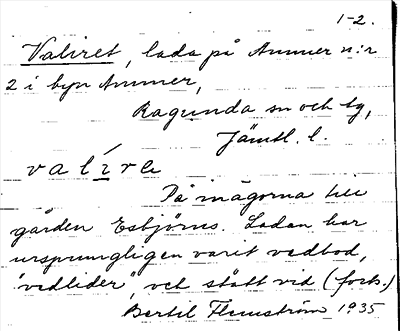 1-2.
Valiret, lada på Ammer n:r
2 i byn Ammer,
Ragunda sn och tg,
Jämtl. l.
valírh
På inägorna till
gården Esbjörns. Ladan har
ursprungligen varit vedbod,
"vedlider", och stått vid (forts.)
Bertil Flemström 1935